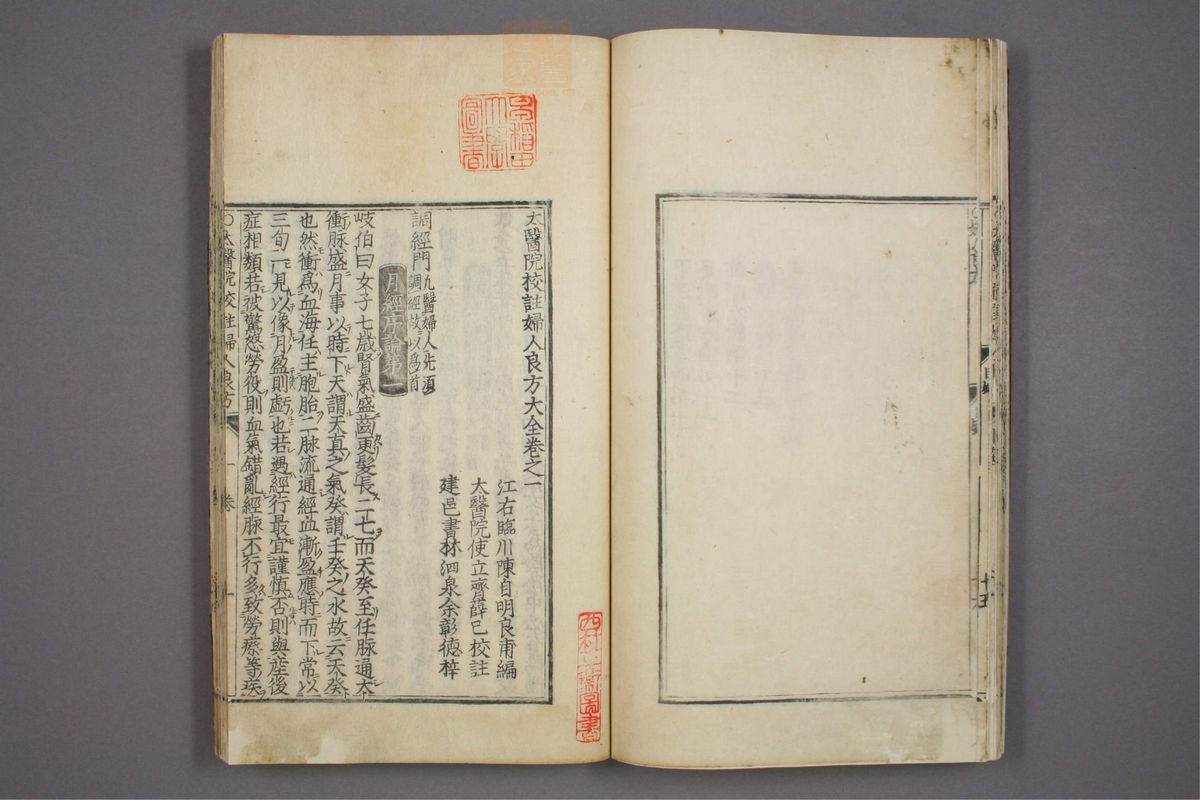 太醫院校註婦人良方大全卷之一
江右臨川陳自明良甫編
太醫院使立齋薛己校註
建邑書林泗泉余彰德梓
調經門
凡醫婦人先須
調經故以爲首
月經序論第一
岐伯曰女子七歲腎氣盛齒更髮長二七而天癸至任脉通太
衝脉盛月事以時下天謂天真之氣癸謂壬癸之水故云天癸
也然衝爲血海任主胞胎二脉流通經血漸盈應時而下常以
三旬一見以像月盈則虧也若遇經行最宜謹慎否則與産後
症相類若被驚怒勞役則血氣錯亂經脉不行多致勞瘵等疾
○太醫院校註婦人良方 一卷 一
早稻田大學圖書